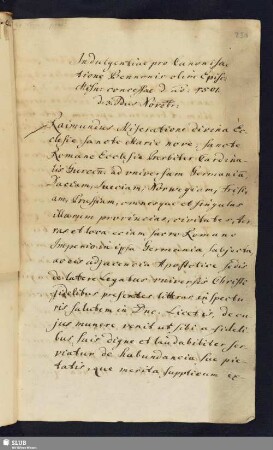 Indulgentiae pro Canonisa-
tione Bennonis olim Episc.
Misn. concessae d. ao. 1501.
d. x. Idus Novbr.
Raimundus Miseratione divina Ec-
clesie sancte Marie nove, sancte
Romane Ecclesie Presbiter Cardina-
lis Gurcen. ad universam Germaniam
Daciam, Sueciam, Norwegiam, Frisi-
am, Prussiam, omnesque et singulas
illarum provincias, civitates, ter-
ras et loca eciam sacro Romano
Imperio in ipsa Germania subjecta
ac eis adjacencia Apostolice sedis
de latere Legatus universis Christi
fidelibus presentes litteras inspectu-
ris salutem in Dno. Licet is, de cu-
jus munere venit ut sibi a fideli-
bus suis digne et laudabiliter ser-
viatur, de habundancia sue pie-
tatis, que merita supplicum ex-
SLUB